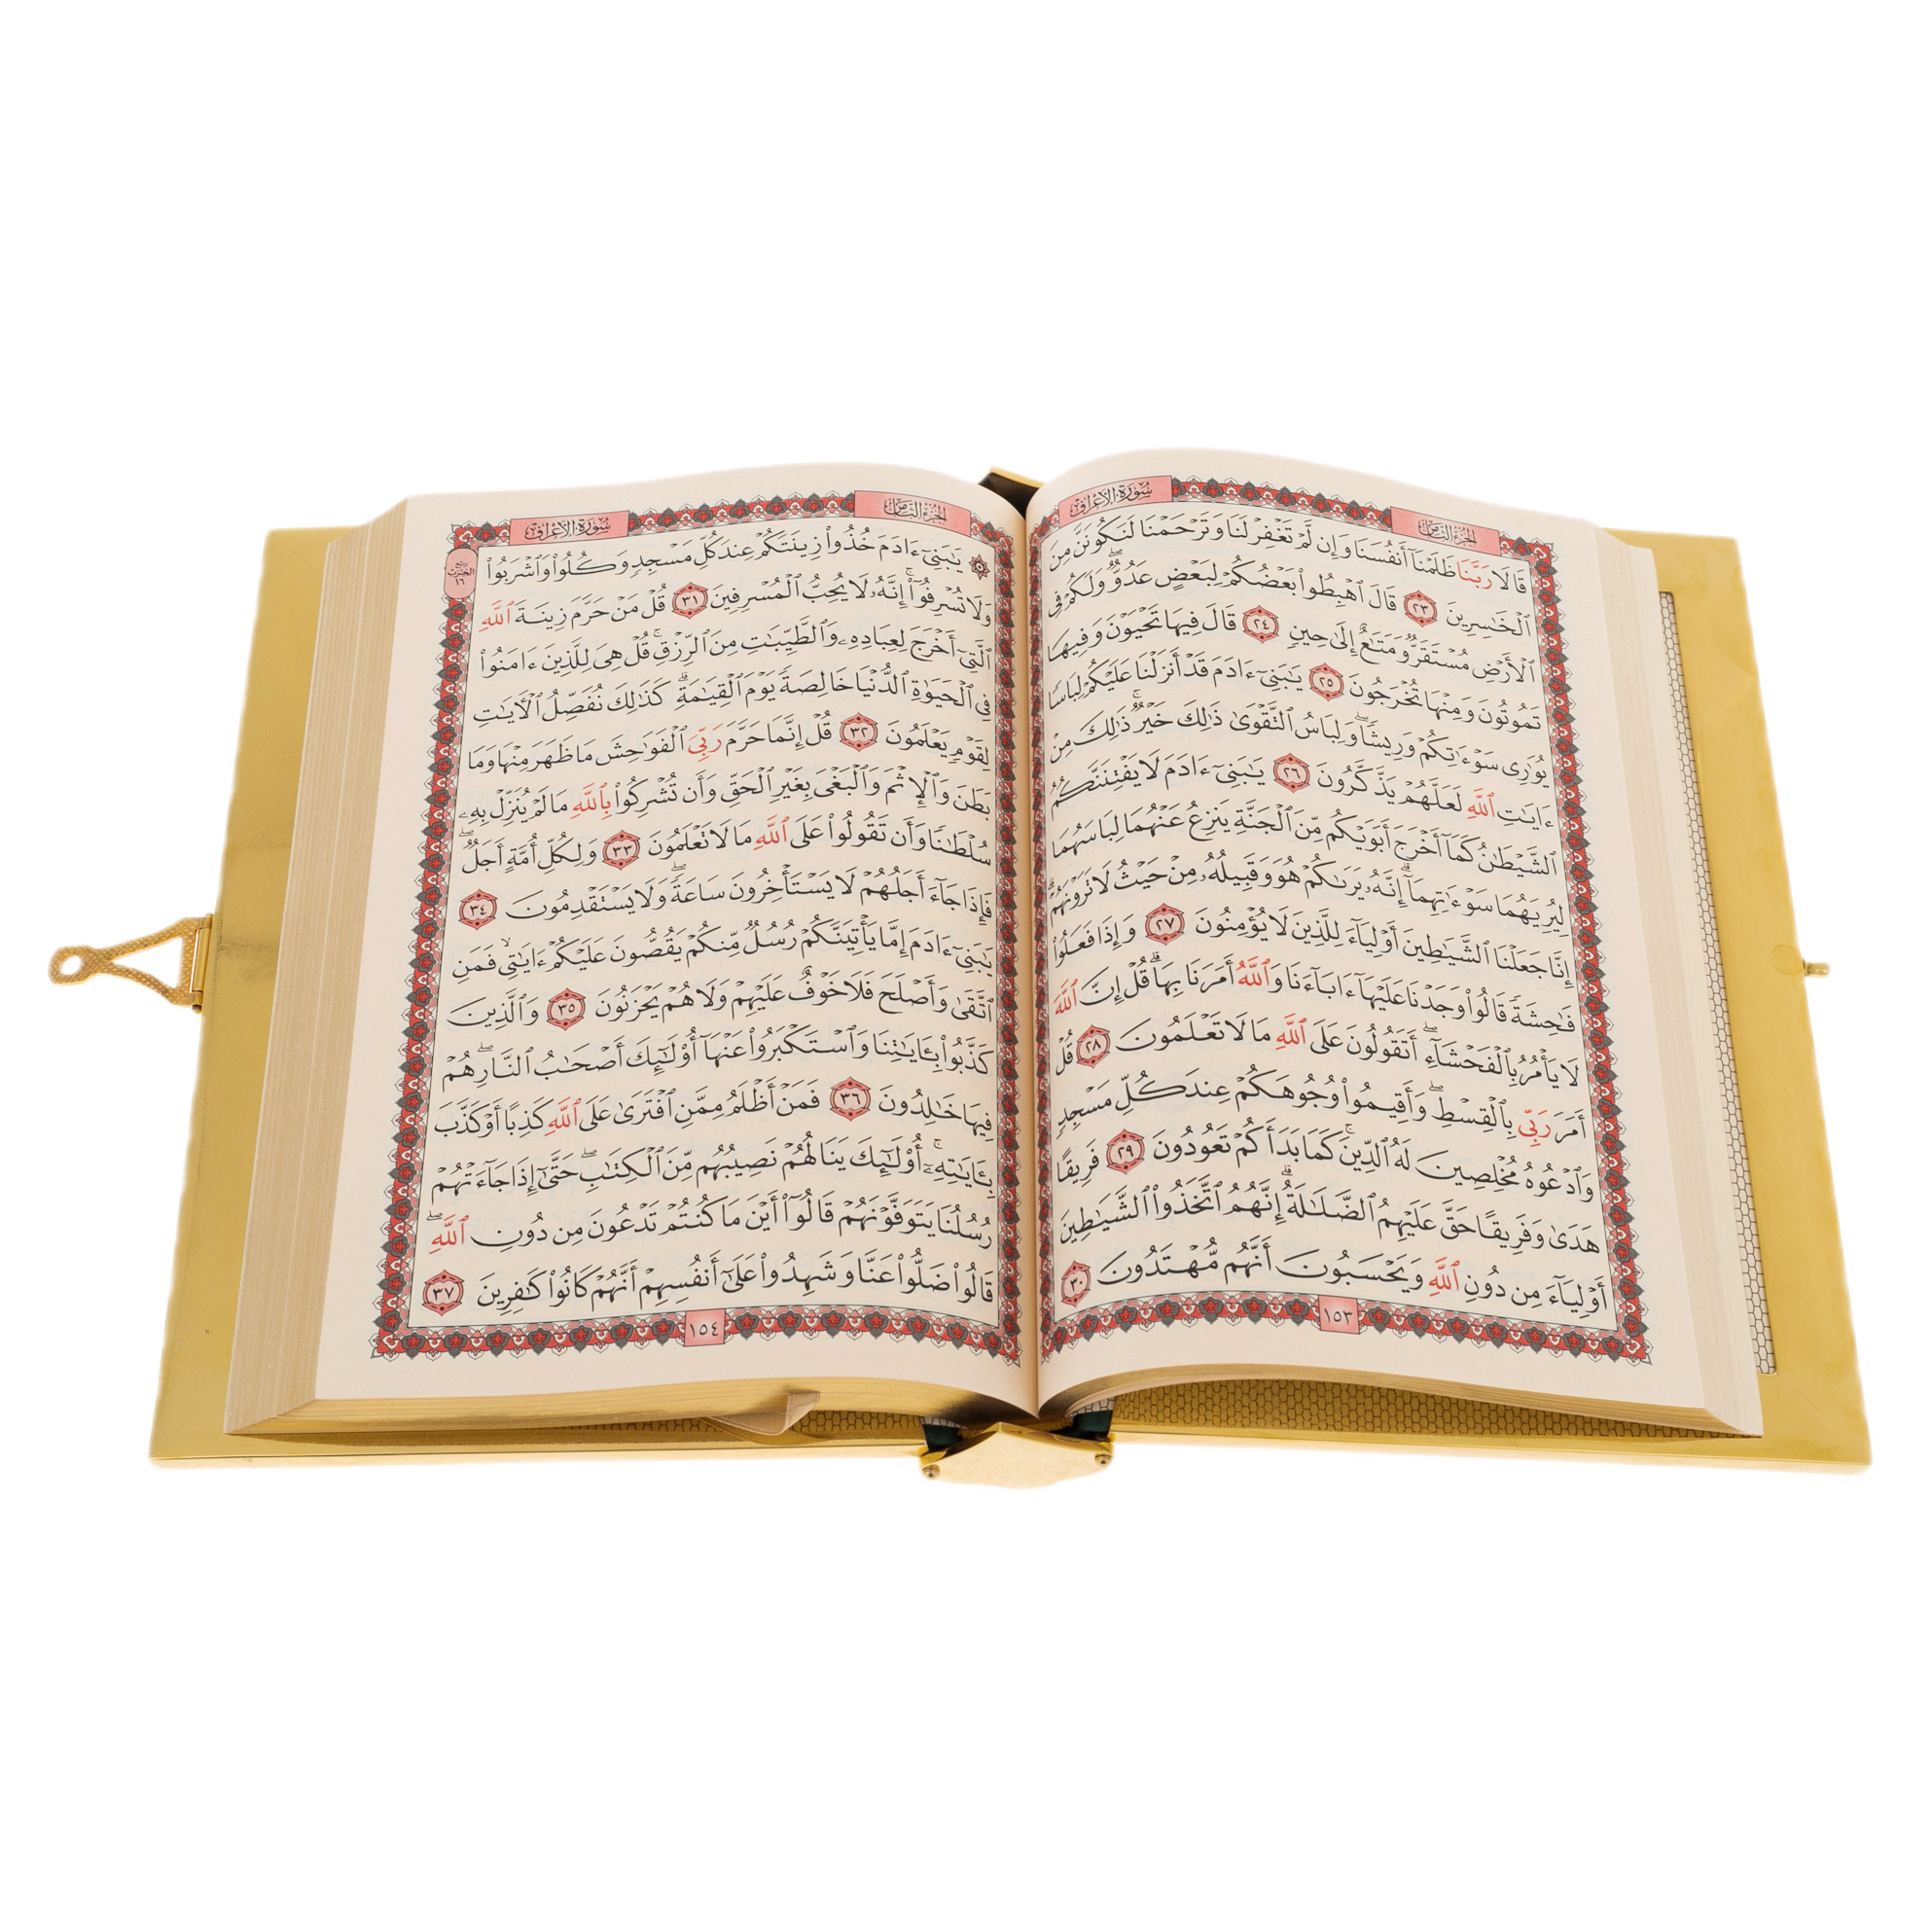 سُورَةُ الأَعْرَافِ
الجُزْءُ الثَّامِنُ
قَالَا رَبَّنَا ظَلَمْنَآ أَنفُسَنَا وَإِن لَّمْ تَغْفِرْ لَنَا وَتَرْحَمْنَا لَنَكُونَنَّ مِنَ
ٱلْخَٰسِرِينَ ٢٣ قَالَ ٱهْبِطُوا۟ بَعْضُكُمْ لِبَعْضٍ عَدُوٌّۖ وَلَكُمْ فِى
ٱلْأَرْضِ مُسْتَقَرٌّ وَمَتَٰعٌ إِلَىٰ حِينٍ ٢٤ قَالَ فِيهَا تَحْيَوْنَ وَفِيهَا
تَمُوتُونَ وَمِنْهَا تُخْرَجُونَ ٢٥ يَٰبَنِىٓ ءَادَمَ قَدْ أَنزَلْنَا عَلَيْكُمْ لِبَاسًا
يُوَٰرِى سَوْءَٰتِكُمْ وَرِيشًاۖ وَلِبَاسُ ٱلتَّقْوَىٰ ذَٰلِكَ خَيْرٌۚ ذَٰلِكَ مِنْ
ءَايَٰتِ ٱللَّهِ لَعَلَّهُمْ يَذَّكَّرُونَ ٢٦ يَٰبَنِىٓ ءَادَمَ لَا يَفْتِنَنَّكُمُ
ٱلشَّيْطَٰنُ كَمَآ أَخْرَجَ أَبَوَيْكُم مِّنَ ٱلْجَنَّةِ يَنزِعُ عَنْهُمَا لِبَاسَهُمَا
لِيُرِيَهُمَا سَوْءَٰتِهِمَآۗ إِنَّهُۥ يَرَىٰكُمْ هُوَ وَقَبِيلُهُۥ مِنْ حَيْثُ لَا تَرَوْنَهُمْۗ
إِنَّا جَعَلْنَا ٱلشَّيَٰطِينَ أَوْلِيَآءَ لِلَّذِينَ لَا يُؤْمِنُونَ ٢٧ وَإِذَا فَعَلُوا۟
فَٰحِشَةً قَالُوا۟ وَجَدْنَا عَلَيْهَآ ءَابَآءَنَا وَٱللَّهُ أَمَرَنَا بِهَاۗ قُلْ إِنَّ ٱللَّهَ
لَا يَأْمُرُ بِٱلْفَحْشَآءِۖ أَتَقُولُونَ عَلَى ٱللَّهِ مَا لَا تَعْلَمُونَ ٢٨ قُلْ
أَمَرَ رَبِّى بِٱلْقِسْطِۖ وَأَقِيمُوا۟ وُجُوهَكُمْ عِندَ كُلِّ مَسْجِدٍ
وَٱدْعُوهُ مُخْلِصِينَ لَهُ ٱلدِّينَۚ كَمَا بَدَأَكُمْ تَعُودُونَ ٢٩ فَرِيقًا
هَدَىٰ وَفَرِيقًا حَقَّ عَلَيْهِمُ ٱلضَّلَٰلَةُۗ إِنَّهُمُ ٱتَّخَذُوا۟ ٱلشَّيَٰطِينَ
أَوْلِيَآءَ مِن دُونِ ٱللَّهِ وَيَحْسَبُونَ أَنَّهُم مُّهْتَدُونَ ٣٠
١٥٣
الجُزْءُ الثَّامِنُ
سُورَةُ الأَعْرَافِ
رُبْعُ الحِزْبِ ١٦
۞ يَٰبَنِىٓ ءَادَمَ خُذُوا۟ زِينَتَكُمْ عِندَ كُلِّ مَسْجِدٍ وَكُلُوا۟ وَٱشْرَبُوا۟
وَلَا تُسْرِفُوٓا۟ۚ إِنَّهُۥ لَا يُحِبُّ ٱلْمُسْرِفِينَ ٣١ قُلْ مَنْ حَرَّمَ زِينَةَ ٱللَّهِ
ٱلَّتِىٓ أَخْرَجَ لِعِبَادِهِۦ وَٱلطَّيِّبَٰتِ مِنَ ٱلرِّزْقِۚ قُلْ هِىَ لِلَّذِينَ ءَامَنُوا۟
فِى ٱلْحَيَوٰةِ ٱلدُّنْيَا خَالِصَةً يَوْمَ ٱلْقِيَٰمَةِۗ كَذَٰلِكَ نُفَصِّلُ ٱلْءَايَٰتِ
لِقَوْمٍ يَعْلَمُونَ ٣٢ قُلْ إِنَّمَا حَرَّمَ رَبِّىَ ٱلْفَوَٰحِشَ مَا ظَهَرَ مِنْهَا وَمَا
بَطَنَ وَٱلْإِثْمَ وَٱلْبَغْىَ بِغَيْرِ ٱلْحَقِّ وَأَن تُشْرِكُوا۟ بِٱللَّهِ مَا لَمْ يُنَزِّلْ بِهِۦ
سُلْطَٰنًا وَأَن تَقُولُوا۟ عَلَى ٱللَّهِ مَا لَا تَعْلَمُونَ ٣٣ وَلِكُلِّ أُمَّةٍ أَجَلٌۖ
فَإِذَا جَآءَ أَجَلُهُمْ لَا يَسْتَأْخِرُونَ سَاعَةًۖ وَلَا يَسْتَقْدِمُونَ ٣٤
يَٰبَنِىٓ ءَادَمَ إِمَّا يَأْتِيَنَّكُمْ رُسُلٌ مِّنكُمْ يَقُصُّونَ عَلَيْكُمْ ءَايَٰتِىۙ فَمَنِ
ٱتَّقَىٰ وَأَصْلَحَ فَلَا خَوْفٌ عَلَيْهِمْ وَلَا هُمْ يَحْزَنُونَ ٣٥ وَٱلَّذِينَ
كَذَّبُوا۟ بِـَٔايَٰتِنَا وَٱسْتَكْبَرُوا۟ عَنْهَآ أُو۟لَٰٓئِكَ أَصْحَٰبُ ٱلنَّارِۖ هُمْ
فِيهَا خَٰلِدُونَ ٣٦ فَمَنْ أَظْلَمُ مِمَّنِ ٱفْتَرَىٰ عَلَى ٱللَّهِ كَذِبًا أَوْ كَذَّبَ
بِـَٔايَٰتِهِۦٓۚ أُو۟لَٰٓئِكَ يَنَالُهُمْ نَصِيبُهُم مِّنَ ٱلْكِتَٰبِۖ حَتَّىٰٓ إِذَا جَآءَتْهُمْ
رُسُلُنَا يَتَوَفَّوْنَهُمْ قَالُوٓا۟ أَيْنَ مَا كُنتُمْ تَدْعُونَ مِن دُونِ ٱللَّهِۖ
قَالُوا۟ ضَلُّوا۟ عَنَّا وَشَهِدُوا۟ عَلَىٰٓ أَنفُسِهِمْ أَنَّهُمْ كَانُوا۟ كَٰفِرِينَ ٣٧
١٥٤